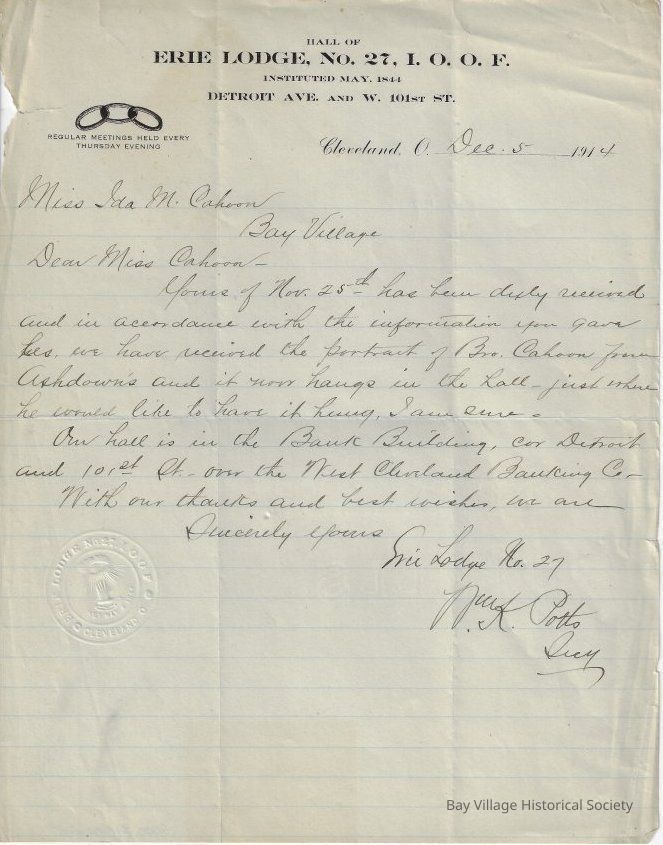 HALL OF
ERIE LODGE, No. 27, I. O. O. F.
INSTITUTED MAY, 1844
DETROIT AVE. AND W. 101ST ST.
REGULAR MEETINGS HELD EVERY
THURSDAY EVENING
Cleveland, O. Dec. 5 1914
Miss Ida M. Cahoon
Bay Village
Dear Miss Cahoon—
Yours of Nov. 25th has been duly received
and in accordance with the information you gave
us, we have received the portrait of Bro. Cahoon from
Ashdown's and it now hangs in the hall – just where
he would like to have it hung, I am sure.
Our hall is in the Bank Building, cor Detroit
and 101st St – over the West Cleveland Banking Co –
With our thanks and best wishes, we are
Sincerely yours
Erie Lodge No. 27
Wm K. Potts
Secy
LODGE No. 27 I.O.O.F.
CLEVELAND O.
Bay Village Historical Society